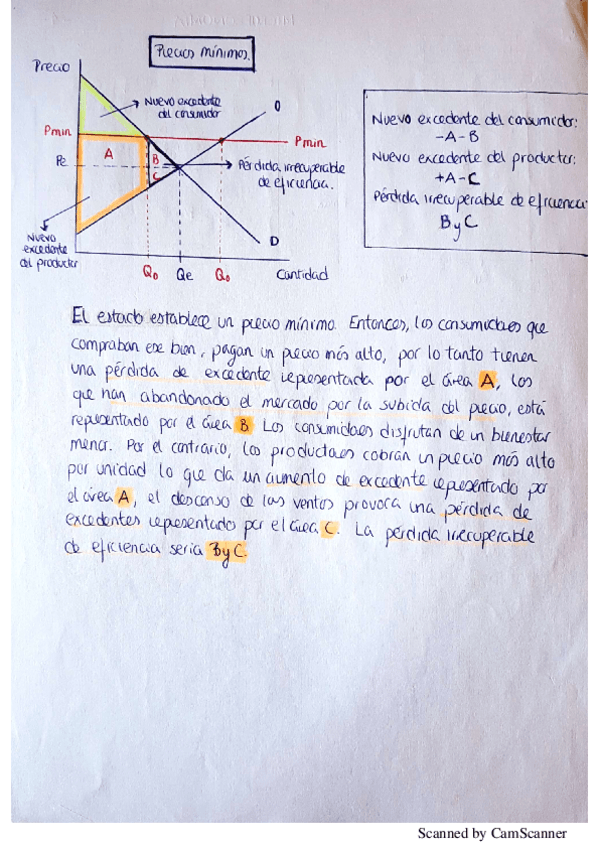 Precios mínimos.
Precio
Nuevo excedente
del consumidor
O
Pmin
Pmin
A
B
Pe
Pérdida irrecuperable
de eficiencia.
C
D
Nuevo
excedente
del productor
Qo
Qe
Qo
Cantidad
Nuevo excedente del consumidor:
-A-B
Nuevo excedente del productor:
+A-C
Pérdida irrecuperable de eficiencia:
B y C
El estado establece un precio mínimo. Entonces, los consumidores que
compraban ese bien, pagan un precio más alto, por lo tanto tienen
una pérdida de excedente representada por el área A, los
que han abandonado el mercado por la subida del precio, está
representado por el área B. Los consumidores disfrutan de un bienestar
menor. Por el contrario, los productores cobran un precio más alto
por unidad lo que da un aumento de excedente representado por
el área A, el descenso de las ventas provoca una pérdida de
excedentes representado por el área C. La pérdida irrecuperable
de eficiencia seria B y C.
Scanned by CamScanner